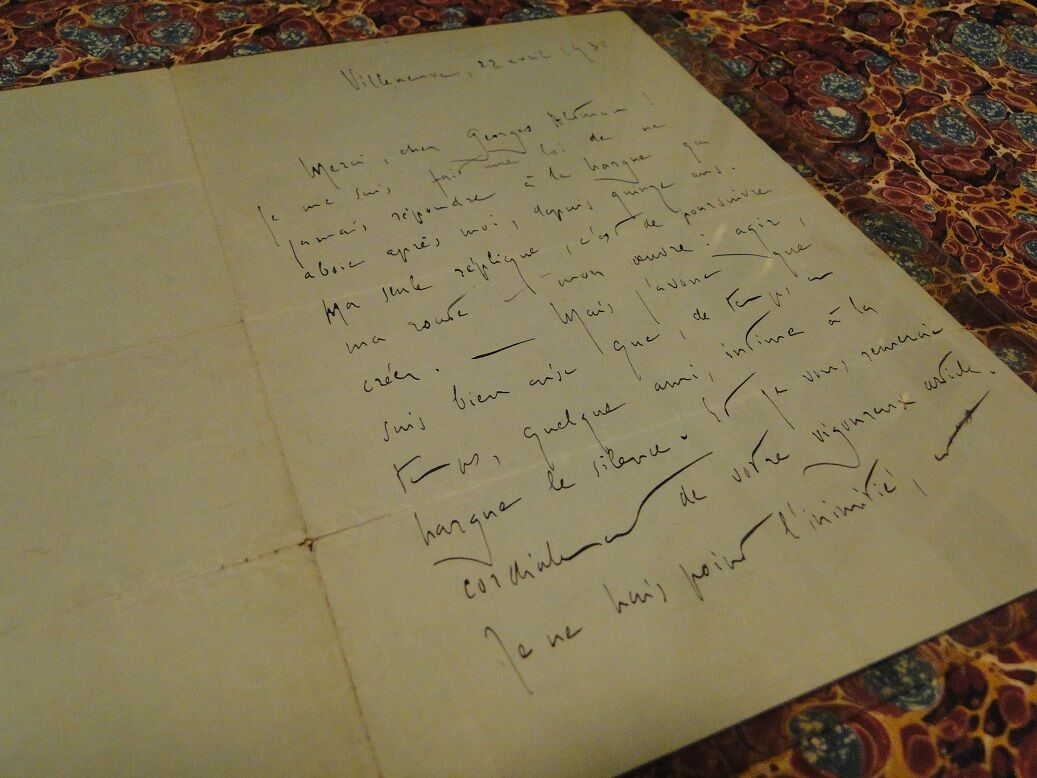 Villeneuve, 22 avril 1930
Merci, cher Georges Altman !
Je me suis fait une loi de ne
jamais répondre à la hargne qui
aboie après moi, depuis quinze ans.
Ma seule réplique, c'est de poursuivre
ma route et mon œuvre : agir,
créer. — Mais j'avoue que
suis bien aise que, de temps en
temps, quelque ami, intime à la
hargne le silence. Et je vous remercie
cordialement de votre vigoureux article.
Je ne hais point l'inimitié,